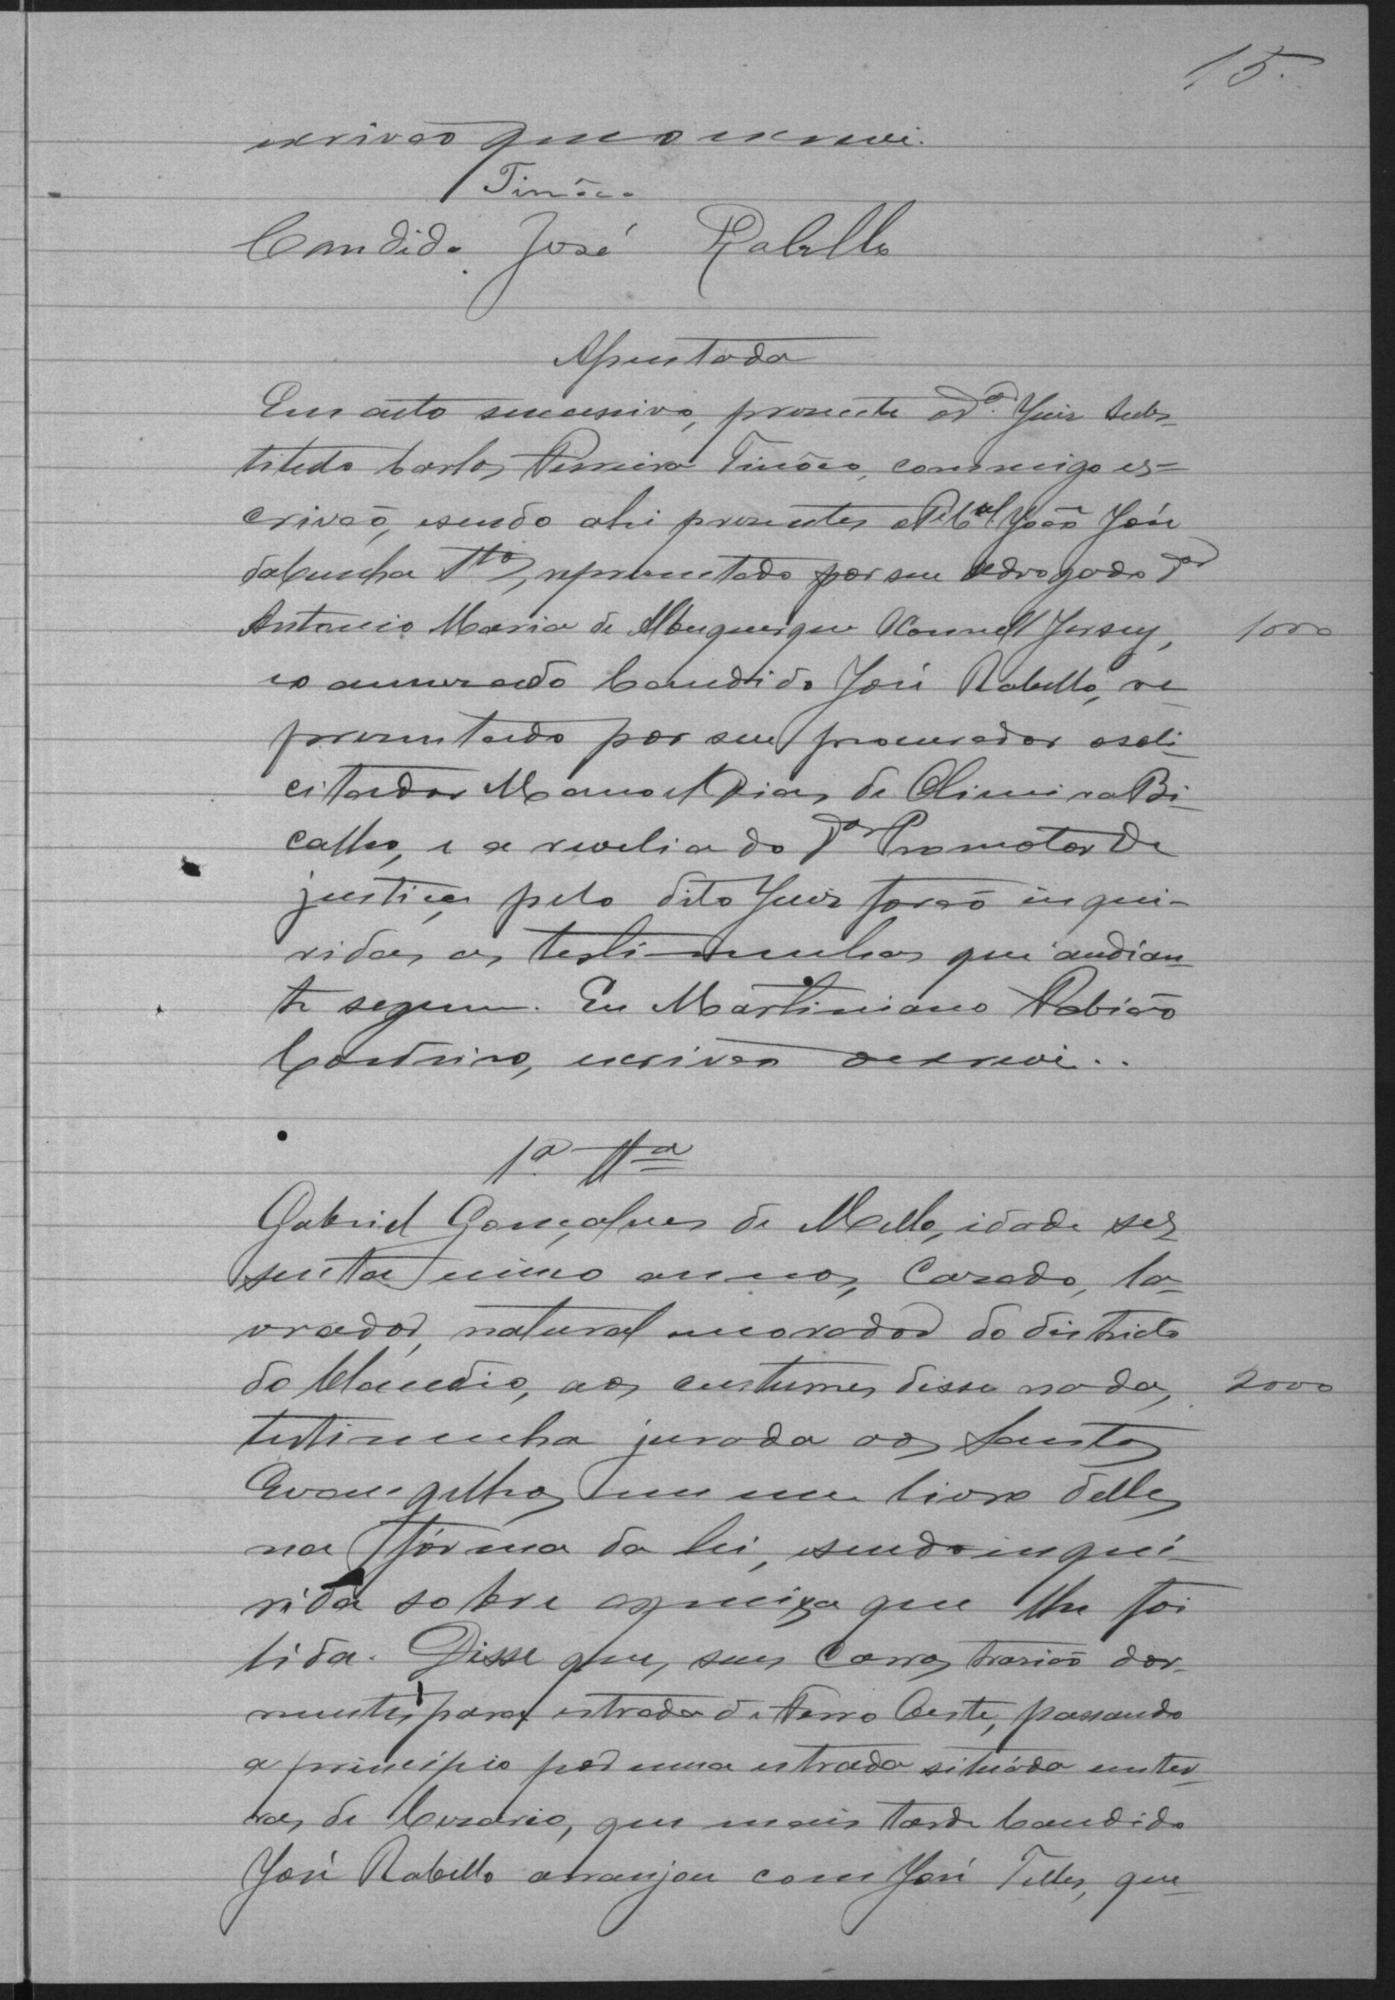 15.
escrivão que o escrevi.
Tinôco
Candido José Rabello
Apentada
Em acto successivo, presente o Dor. Juiz Subs-
tituto Carlos Ferreira Tinôco, commigo es-
crivão, e sendo ahi presentes o João José
da Cunha representado por seu advogado Dor
Antonio Maria de Albuquerque Oconnell Jersey, 1000
e o accusado Candido José Rabello, re-
presentado por seu procurador o soli-
citador Manoel Dias de Oliveira Bi-
calho, e a revelia do Dor Promotor de
justiça, pelo dito Juiz forão inqui-
ridas as testimunhas que audian-
te seguem. Eu Martiniano Fabião
Cordeiro, escrivão o escrevi..
1ª. Ttª
Gabriel Gonçalves de Mello, idade ses-
senta e cinco annos, Casado, la-
vrador, natural e morador do districto
do Claudio, aos custumes disse nada, 2000
testimunha jurada aos Santos
Evangelhos em um livro delles
na fórma da lei, e sendo inqui-
rida sobre a queixa que lhe foi
lida. Disse que, seus Carros trasião dor-
mentes para estrada de Ferro Oeste, passando
a principio por uma estrada situada em ter-
ras de Cesario, que mais tarde Candido
José Rabello arranjou com José Telles, que